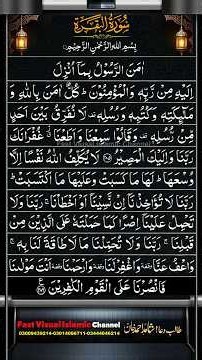 سُورَةُ الْبَقَرَة
بِسْمِ اللهِ الرَّحْمٰنِ الرَّحِيْمِ
اٰمَنَ الرَّسُوْلُ بِمَاۤ اُنْزِلَ
اِلَيْهِ مِنْ رَّبِّهٖ وَالْمُؤْمِنُوْنَ ؕ كُلٌّ اٰمَنَ بِاللّٰهِ وَ
مَلٰٓئِكَتِهٖ وَكُتُبِهٖ وَرُسُلِهٖ ۟ لَا نُفَرِّقُ بَيْنَ اَحَدٍ
مِّنْ رُّسُلِهٖ ۟ وَقَالُوْا سَمِعْنَا وَاَطَعْنَا ۗ غُفْرَانَكَ
رَبَّنَا وَاِلَيْكَ الْمَصِيْرُ ۝ لَا يُكَلِّفُ اللّٰهُ نَفْسًا اِلَّا
وُسْعَهَا ؕ لَهَا مَا كَسَبَتْ وَعَلَيْهَا مَا اكْتَسَبَتْ ؕ
رَبَّنَا لَا تُؤَاخِذْنَاۤ اِنْ نَّسِيْنَاۤ اَوْ اَخْطَاْنَا ۚ رَبَّنَا وَلَا
تَحْمِلْ عَلَيْنَاۤ اِصْرًا كَمَا حَمَلْتَهٗ عَلَى الَّذِيْنَ مِنْ
قَبْلِنَا ۚ رَبَّنَا وَلَا تُحَمِّلْنَا مَا لَا طَاقَةَ لَنَا بِهٖ ۚ
وَاعْفُ عَنَّا ۥ وَاغْفِرْ لَنَا ۥ وَارْحَمْنَا ۥ اَنْتَ مَوْلٰىنَا
فَانْصُرْنَا عَلَى الْقَوْمِ الْكٰفِرِيْنَ ۝
Fast Visual Islamic Channel
طالب دعا